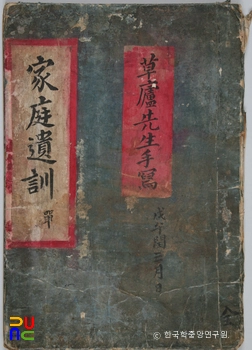 草廬先生手寫
家庭遺訓 單
閏三月日
ⓒ 한국학중앙연구원